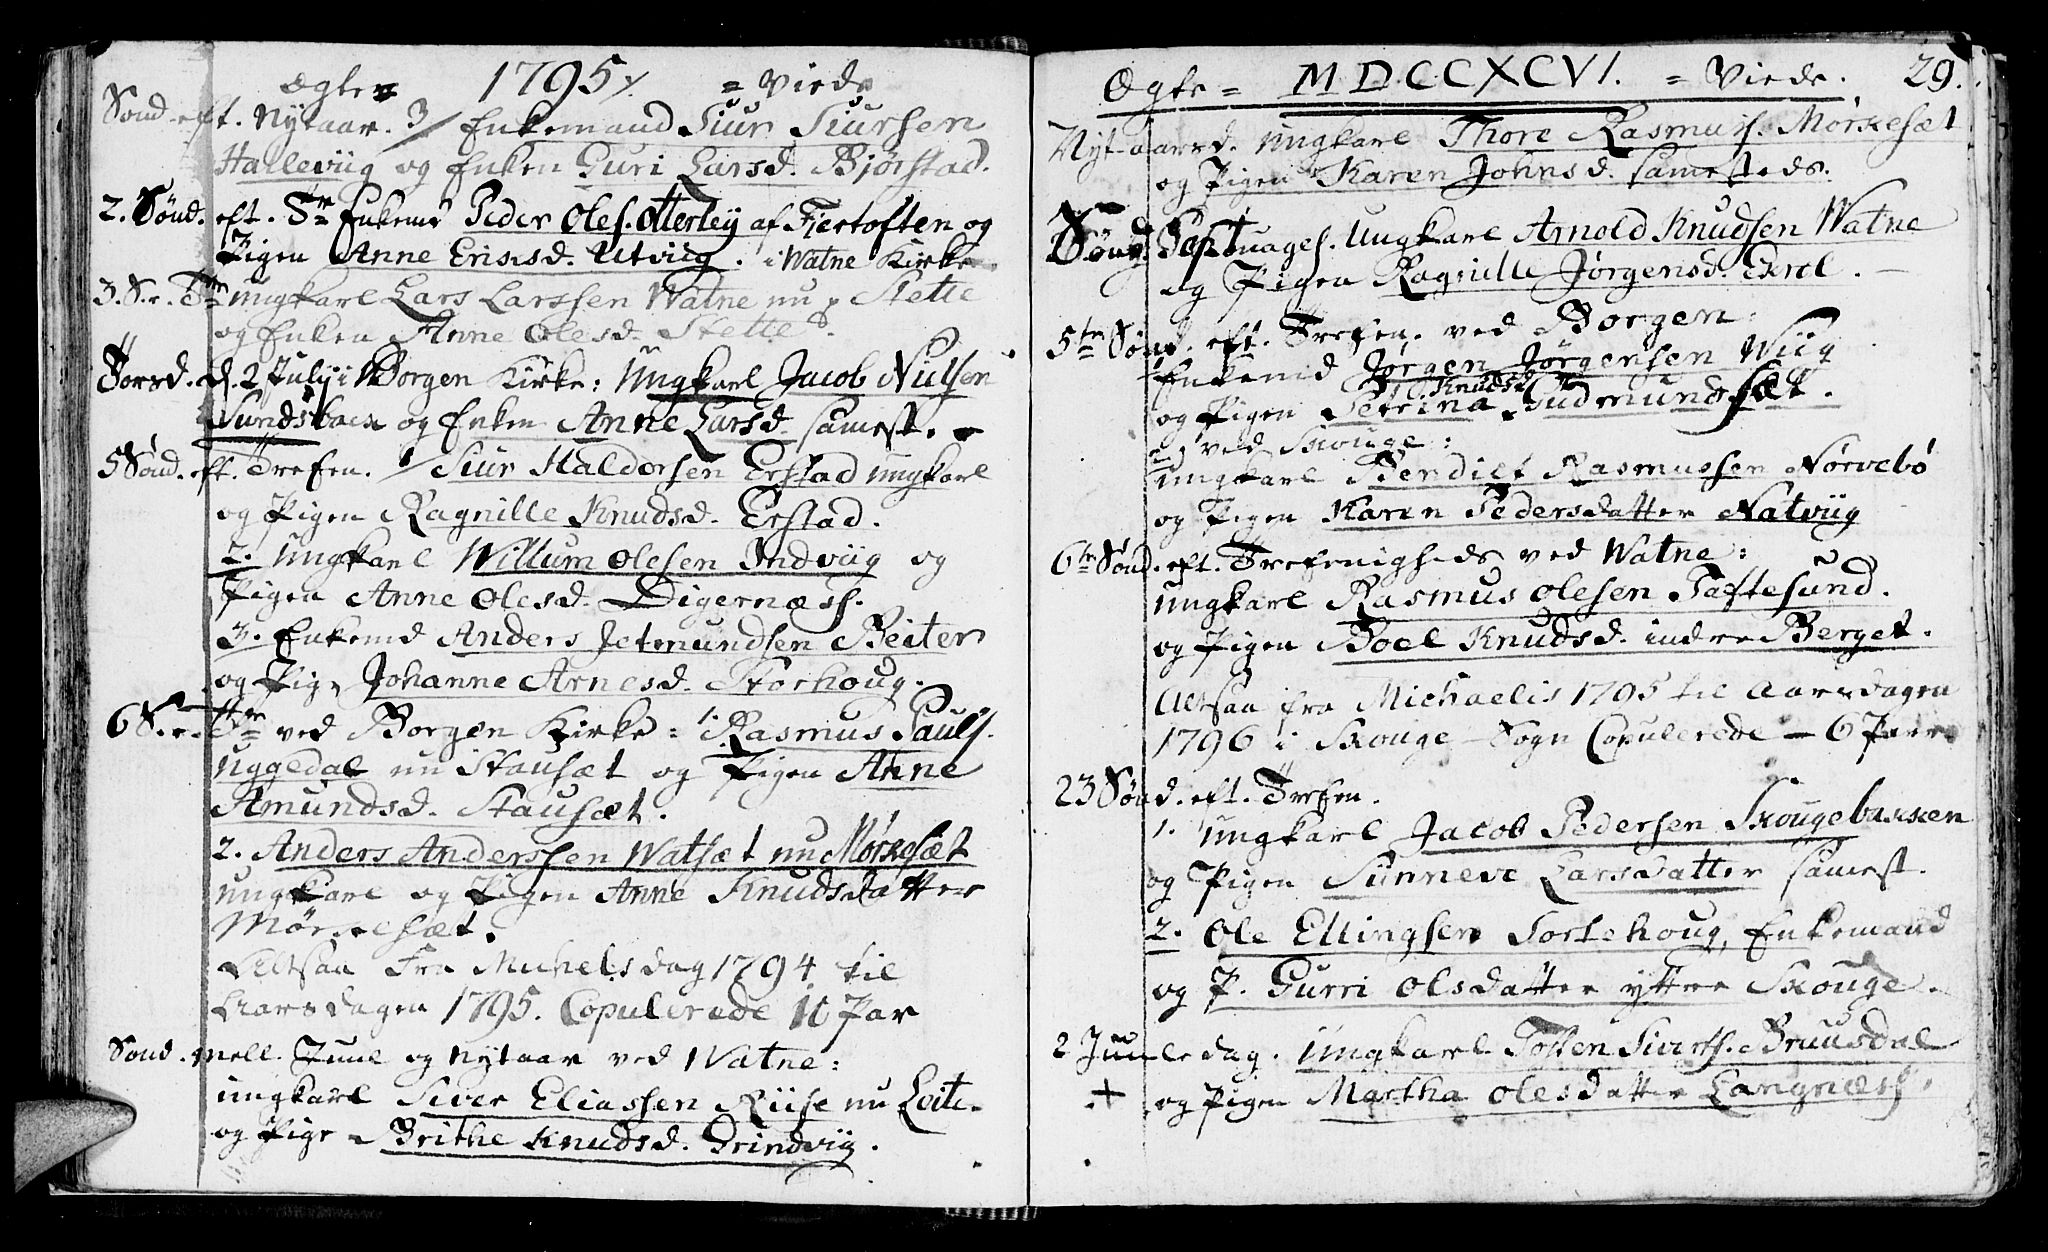 Ægte= 1795 =Viede
Sønd. eft. Nytaar. 3/ Enkemand Siur Siursen
Halleviig og Enken Guri Larsd. Bjørstad.
2. Sønd. eft. Enkemd Peder Oles. Otterleij af Fiertoften og
Pigen Anne Ericsd. Utviig. i Watne Kirke.
3. S. e. Ungkarl Lars Larssen Watne nu p Stette
og Enken Anne Olesd. Stette.
Torsd. d. 2 Julij i Borgen Kirke: Ungkarl Jacob Nielsen
Sundsback og Enken Anne Larsd. samest.
5 Sønd. eft. Trefen. 1/ Siur Haldorsen Erstad Ungkarl
og Pigen Ragnille Knudsd. Erstad.
2. Ungkarl Willum Olesen Indviig og
Pigen Anne Olesd. Digernæss.
3. Enkemd Anders Jetmundsen Beiter
og Pig. Johanne Arnesd. Storhoug.
6 S. e. Tr ved Borgen Kirke: 1. Rasmus Pauls.
Uggedal nu Stausæt og Pigen Anne
Amundsd. Stausæt.
2. Anders Anderssen Watsæt nu Mørkesæt
Ungkarl og Pigen Anne Knudsdatter
Mørkesæt.
Altsaa Fra Michelsdag 1794 til
Aarsdagen 1795. Copulerede 10 Par
Sønd. mell. Juul og Nytaar ved Watne:
Ungkarl Siver Eliassen Riise nu Leite
og Pige Brithe Knudsd. Grindviig.
Ægte= MDCCXCVI. =Viede. 29.
Nyt-aarsd. Ungkarl Thore Rasmuss. Mørkesæt
og Pigen Karen Johnsd. samesteds.
Sønd. Septuages. Ungkarl Arnold Knudsen Watne
og Pigen Ragnille Jørgensd. Exrel.
5te Sønd. eft. Trefen. ved Borgen:
Enkemd Jørgen Jørgensen Wiig
og Pigen Petrina Knudsd. Gudmundsæt.
2, ved Skouge:
Ungkarl Bendict Rasmussen Nørvebø
og Pigen Karen Pedersdatter Natviig
6te Sønd. eft. Trefenigheds ved Watne:
Ungkarl Rasmus Olesen Taftesund.
og Pigen Boel Knudsd. indre Berget.
Altsaa fra Michaelis 1795 til Aarsdagen
1796 i Skouge Sogn Copulerede 6 Par
23 Sønd. eft. Trefen.
1. Ungkarl Jacob Pedersen Skougebakken
og Pigen Sunneve Larsdatter samest.
2. Ole Ellingsen Tortehoug, Enkemand
og P. Gurri Olsdatter yttre Skouge.
2 Juuledag. Ungkarl Tosten Siverts. Bruusdal
+ og Pigen Martha Olesdatter Langnæss.